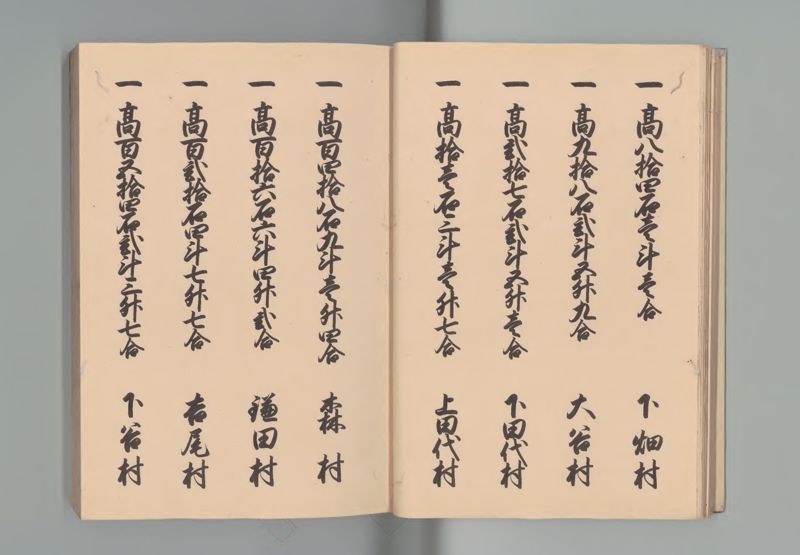 一 高八拾四石壱斗壱合 下畑村
一 高九拾八石弐斗五升九合 大谷村
一 高弐拾七石弐斗五升壱合 下田代村
一 高拾壱石三斗壱升七合 上田代村
一 高百四拾八石九斗壱升四合 森村
一 高百拾六石六斗四升弐合 鎌田村
一 高百弐拾石四斗七升七合 吉尾村
一 高百五拾四石弐斗三升七合 下谷村